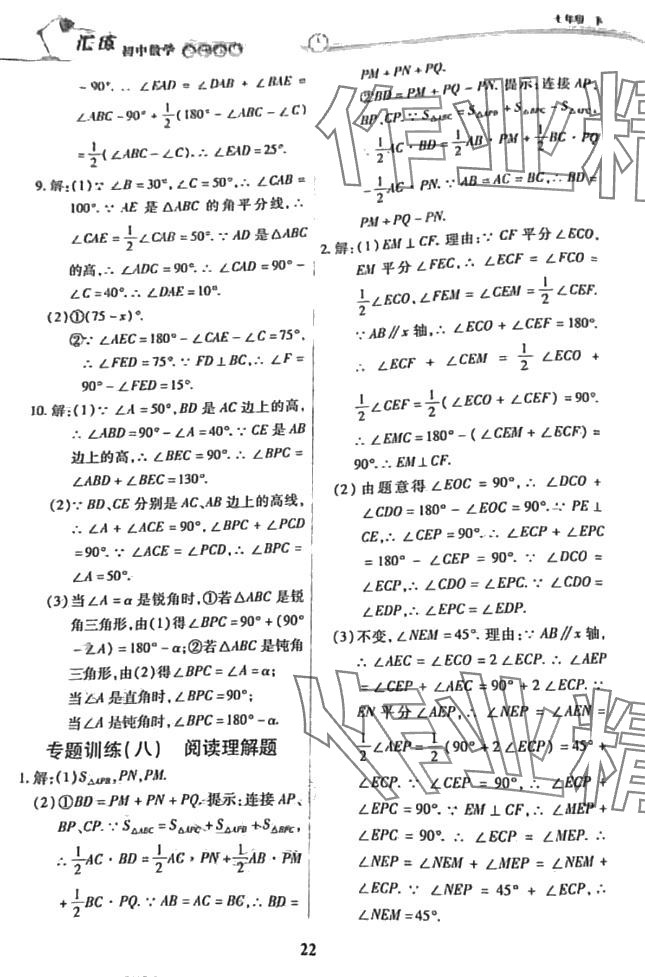 汇练 初中数学
七年级 下
-90°.∴ ∠EAD = ∠DAB + ∠BAE =
∠ABC-90°+1/2(180°-∠ABC-∠C)
=1/2(∠ABC-∠C).∴ ∠EAD=25°.
9.解:(1)∵ ∠B=30°,∠C=50°,∴ ∠CAB=
100°.∵ AE 是 △ABC 的角平分线,∴
∠CAE=1/2∠CAB=50°.∵ AD 是△ABC
的高,∴ ∠ADC=90°.∴ ∠CAD=90°-
∠C=40°.∴ ∠DAE=10°.
(2)①(75-x)°.
②∵ ∠AEC=180°-∠CAE-∠C=75°,
∴ ∠FED=75°.∵ FD⊥BC,∴ ∠F=
90°-∠FED=15°.
10.解:(1)∵ ∠A=50°,BD 是 AC 边上的高,
∴ ∠ABD=90°-∠A=40°.∵ CE 是 AB
边上的高,∴ ∠BEC=90°.∴ ∠BPC=
∠ABD+∠BEC=130°.
(2)∵ BD、CE 分别是 AC、AB 边上的高线,
∴ ∠A+∠ACE=90°,∠BPC+∠PCD
=90°.∵ ∠ACE=∠PCD,∴ ∠BPC=
∠A=50°.
(3)当∠A=α 是锐角时,①若△ABC 是锐
角三角形,由(1)得∠BPC=90°+(90°
-∠A)=180°-α;②若△ABC 是钝角
三角形,由(2)得∠BPC=∠A=α;
当∠A 是直角时,∠BPC=90°;
当∠A 是钝角时,∠BPC=180°-α.
专题训练(八) 阅读理解题
1.解:(1)S△APB,PN,PM.
(2)①BD=PM+PN+PQ.提示:连接 AP、
BP、CP.∵ S△ABC=S△APC+S△APB+S△BPC,
∴ 1/2AC·BD=1/2AC·PN+1/2AB·PM
+1/2BC·PQ.∵ AB=AC=BC,∴ BD=
PM+PN+PQ.
②BD=PM+PQ-PN.提示:连接 AP、
BP、CP.∵ S△ABC=S△APB+S△BPC-S△APC,
∴ 1/2AC·BD=1/2AB·PM+1/2BC·PQ
-1/2AC·PN.∵ AB=AC=BC,∴ BD=
PM+PQ-PN.
2.解:(1)EM⊥CF.理由:∵ CF 平分∠ECO,
EM 平分∠FEC,∴ ∠ECF=∠FCO=
1/2∠ECO,∠FEM=∠CEM=1/2∠CEF.
∵ AB∥x 轴,∴ ∠ECO+∠CEF=180°.
∴ ∠ECF + ∠CEM = 1/2∠ECO +
1/2∠CEF=1/2(∠ECO+∠CEF)=90°.
∴ ∠EMC=180°-(∠CEM+∠ECF)=
90°.∴ EM⊥CF.
(2) 由题意得 ∠EOC = 90°,∴ ∠DCO +
∠CDO=180°-∠EOC=90°.∵ PE⊥
CE,∴ ∠CEP=90°.∴ ∠ECP+∠EPC
=180°-∠CEP=90°.∵ ∠DCO=
∠ECP,∴ ∠CDO=∠EPC.∵ ∠CDO=
∠EDP,∴ ∠EPC=∠EDP.
(3)不变,∠NEM=45°.理由:∵ AB∥x 轴,
∴ ∠AEC=∠ECO=2∠ECP.∴ ∠AEP
=∠CEP+∠AEC=90°+2∠ECP.∵
EN 平分∠AEP,∴ ∠NEP=∠AEN=
1/2∠AEP=1/2(90°+2∠ECP)=45°+
∠ECP.∵ ∠CEP=90°,∴ ∠ECP+
∠EPC=90°.∵ EM⊥CF,∴ ∠MEP+
∠EPC=90°.∴ ∠ECP=∠MEP.∴
∠NEP=∠NEM+∠MEP=∠NEM+
∠ECP.∵ ∠NEP=45°+∠ECP,∴
∠NEM=45°.
22
作业精
作业精